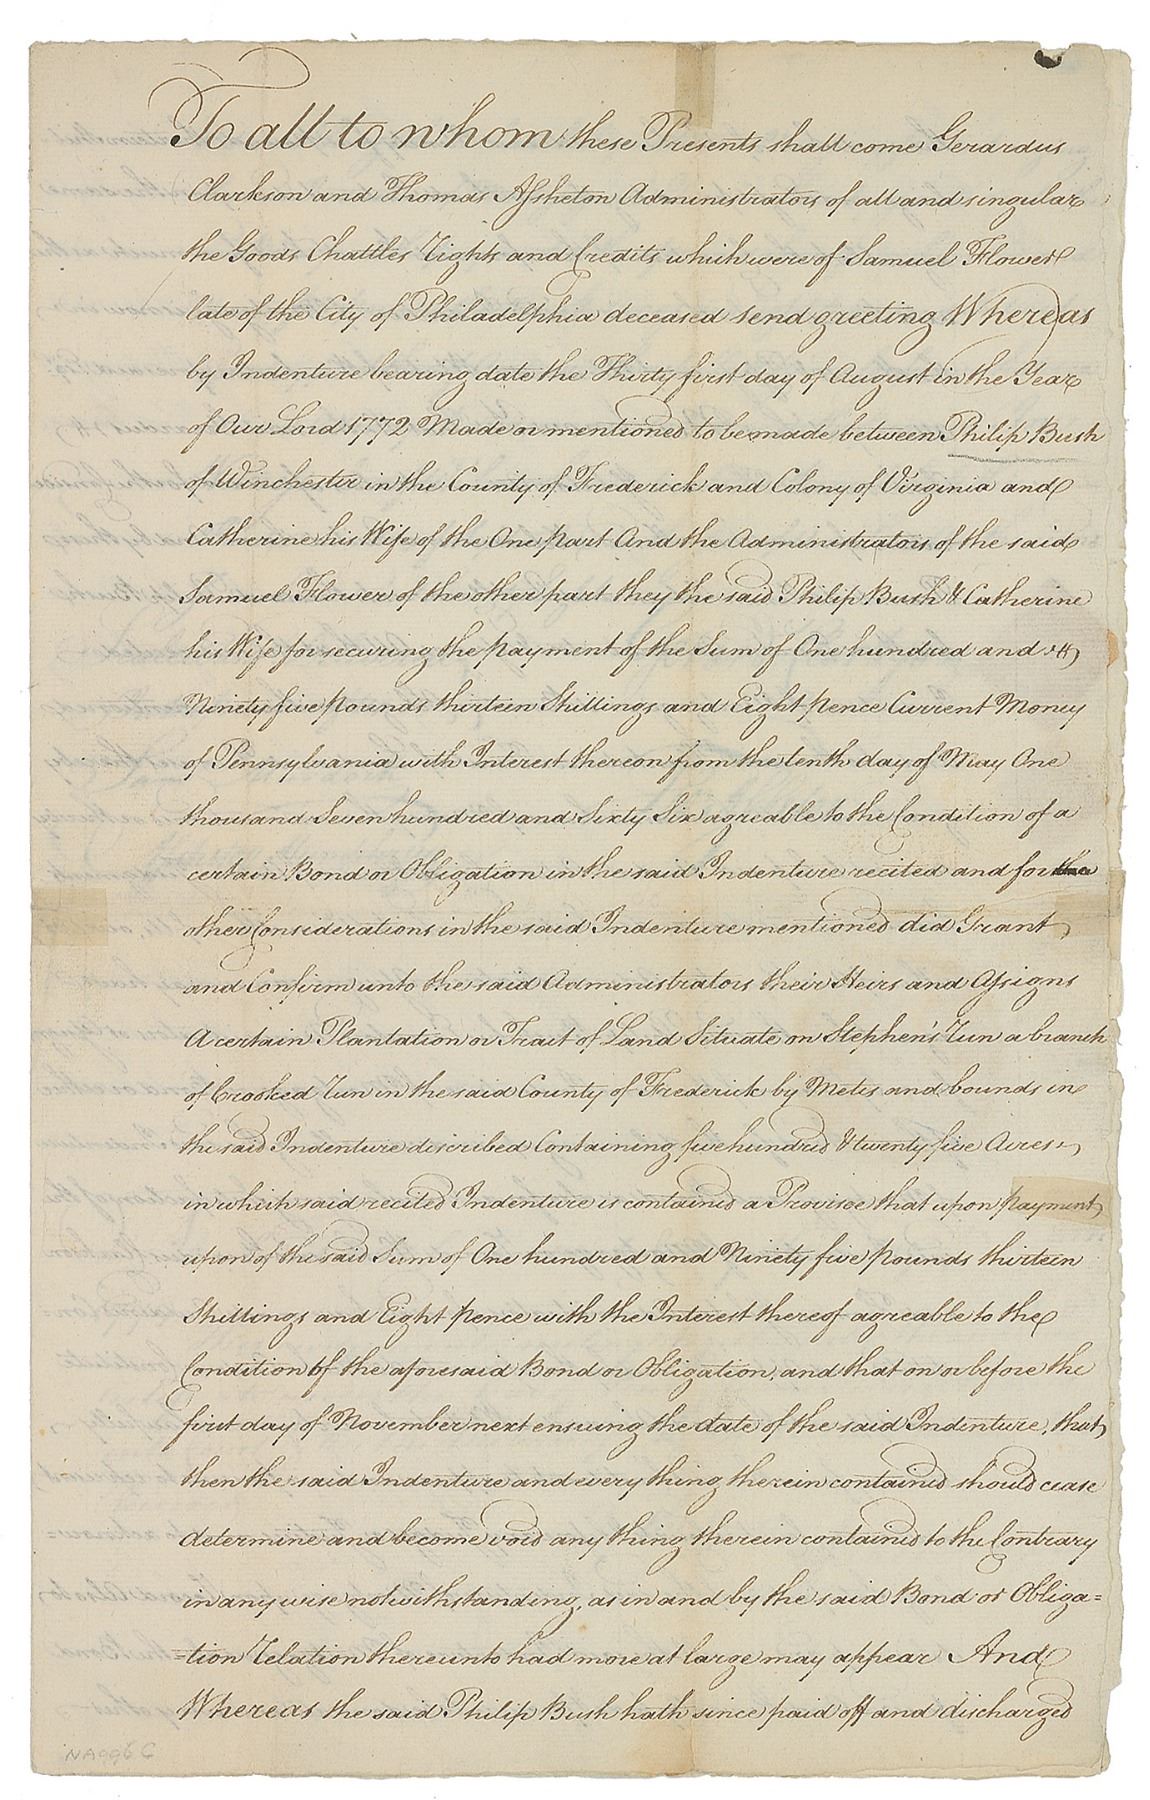 To all to whom these Presents shall come Gerardus
Clarkson and Thomas Assheton Administrators of all and singular
the Goods Chattles Rights and Credits which were of Samuel Flower
late of the City of Philadelphia deceased send greeting Whereas
by Indenture bearing date the Thirty first day of August in the Year
of Our Lord 1772 Made or mentioned to be made between Philip Bush
of Winchester in the County of Frederick and Colony of Virginia and
Catherine his Wife of the One part And the Administrators of the said
Samuel Flower of the other part they the said Philip Bush & Catherine
his Wife for securing the payment of the Sum of One hundred and
Ninety five pounds thirteen Shillings and Eight pence Current Money
of Pennsylvania with Interest thereon from the tenth day of May One
thousand Seven hundred and Sixty Six agreable to the Condition of a
certain Bond or Obligation in the said Indenture recited and for
other Considerations in the said Indenture mentioned did Grant
and Confirm unto the said Administrators their Heirs and Assigns
A certain Plantation or Tract of Land Situate on Stephen's Run a branch
of Crooked Run in the said County of Frederick by Metes and bounds in
the said Indenture described Containing five hundred & twenty five Acres
in which said recited Indenture is contained a Provisoe that upon payment
upon of the said Sum of One hundred and Ninety five pounds thirteen
Shillings and Eight pence with the Interest thereof agreable to the
Condition of the aforesaid Bond or Obligation, and that on or before the
first day of November next ensuing the date of the said Indenture, that
then the said Indenture and every thing therein contained should cease
determine and become void any thing therein contained to the Contrary
in any wise notwithstanding, as in and by the said Bond or Obliga=
=tion Relation thereunto had more at large may appear And
Whereas the said Philip Bush hath since paid off and discharged
NA996 C